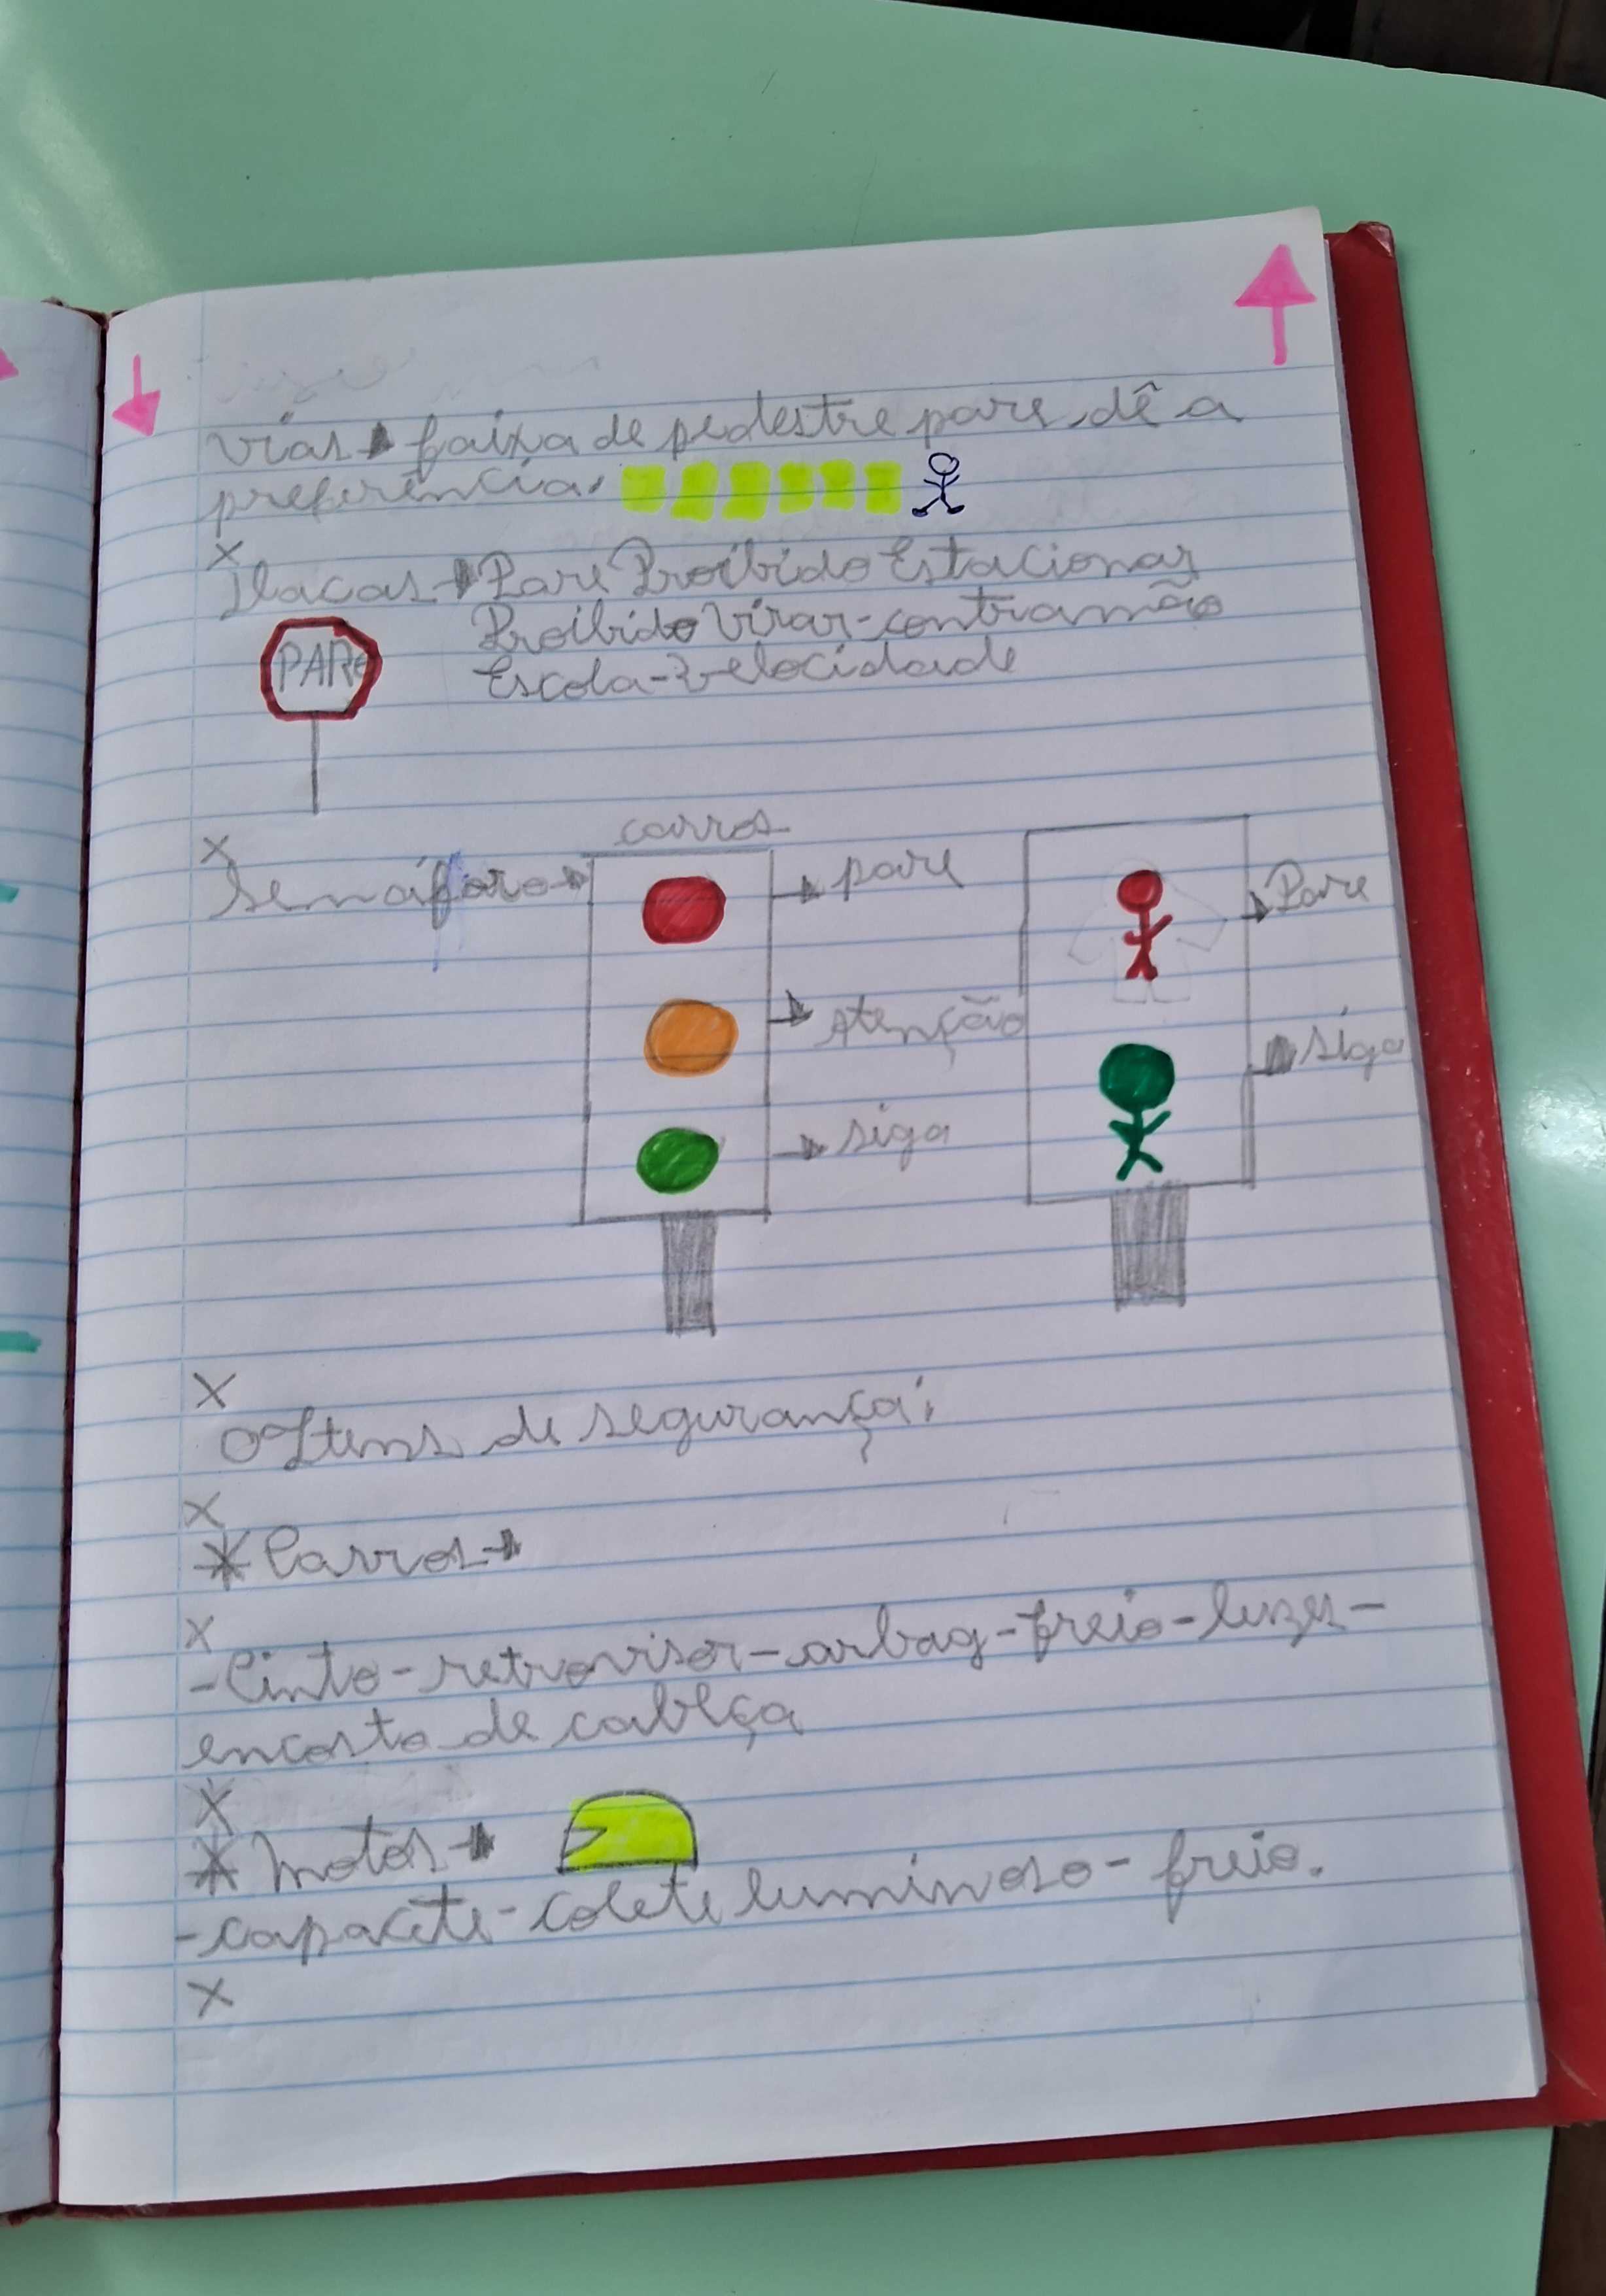 vias → faixa de pedestre pare, dê a
preferência.
x
Placas → Pare Proibido Estacionar
Proibido Virar - contramão
Escola - velocidade
PARe
x
carros
Semáforo →
→ pare
→ Pare
→ Atenção
→ siga
→ siga
x
O Itens de segurança:
x
* Carros →
x
- Cinto - retrovisor - arbag - freio - luzes -
encosto de cabeça
x
* Motos →
- capacete - colete luminoso - freio.
x